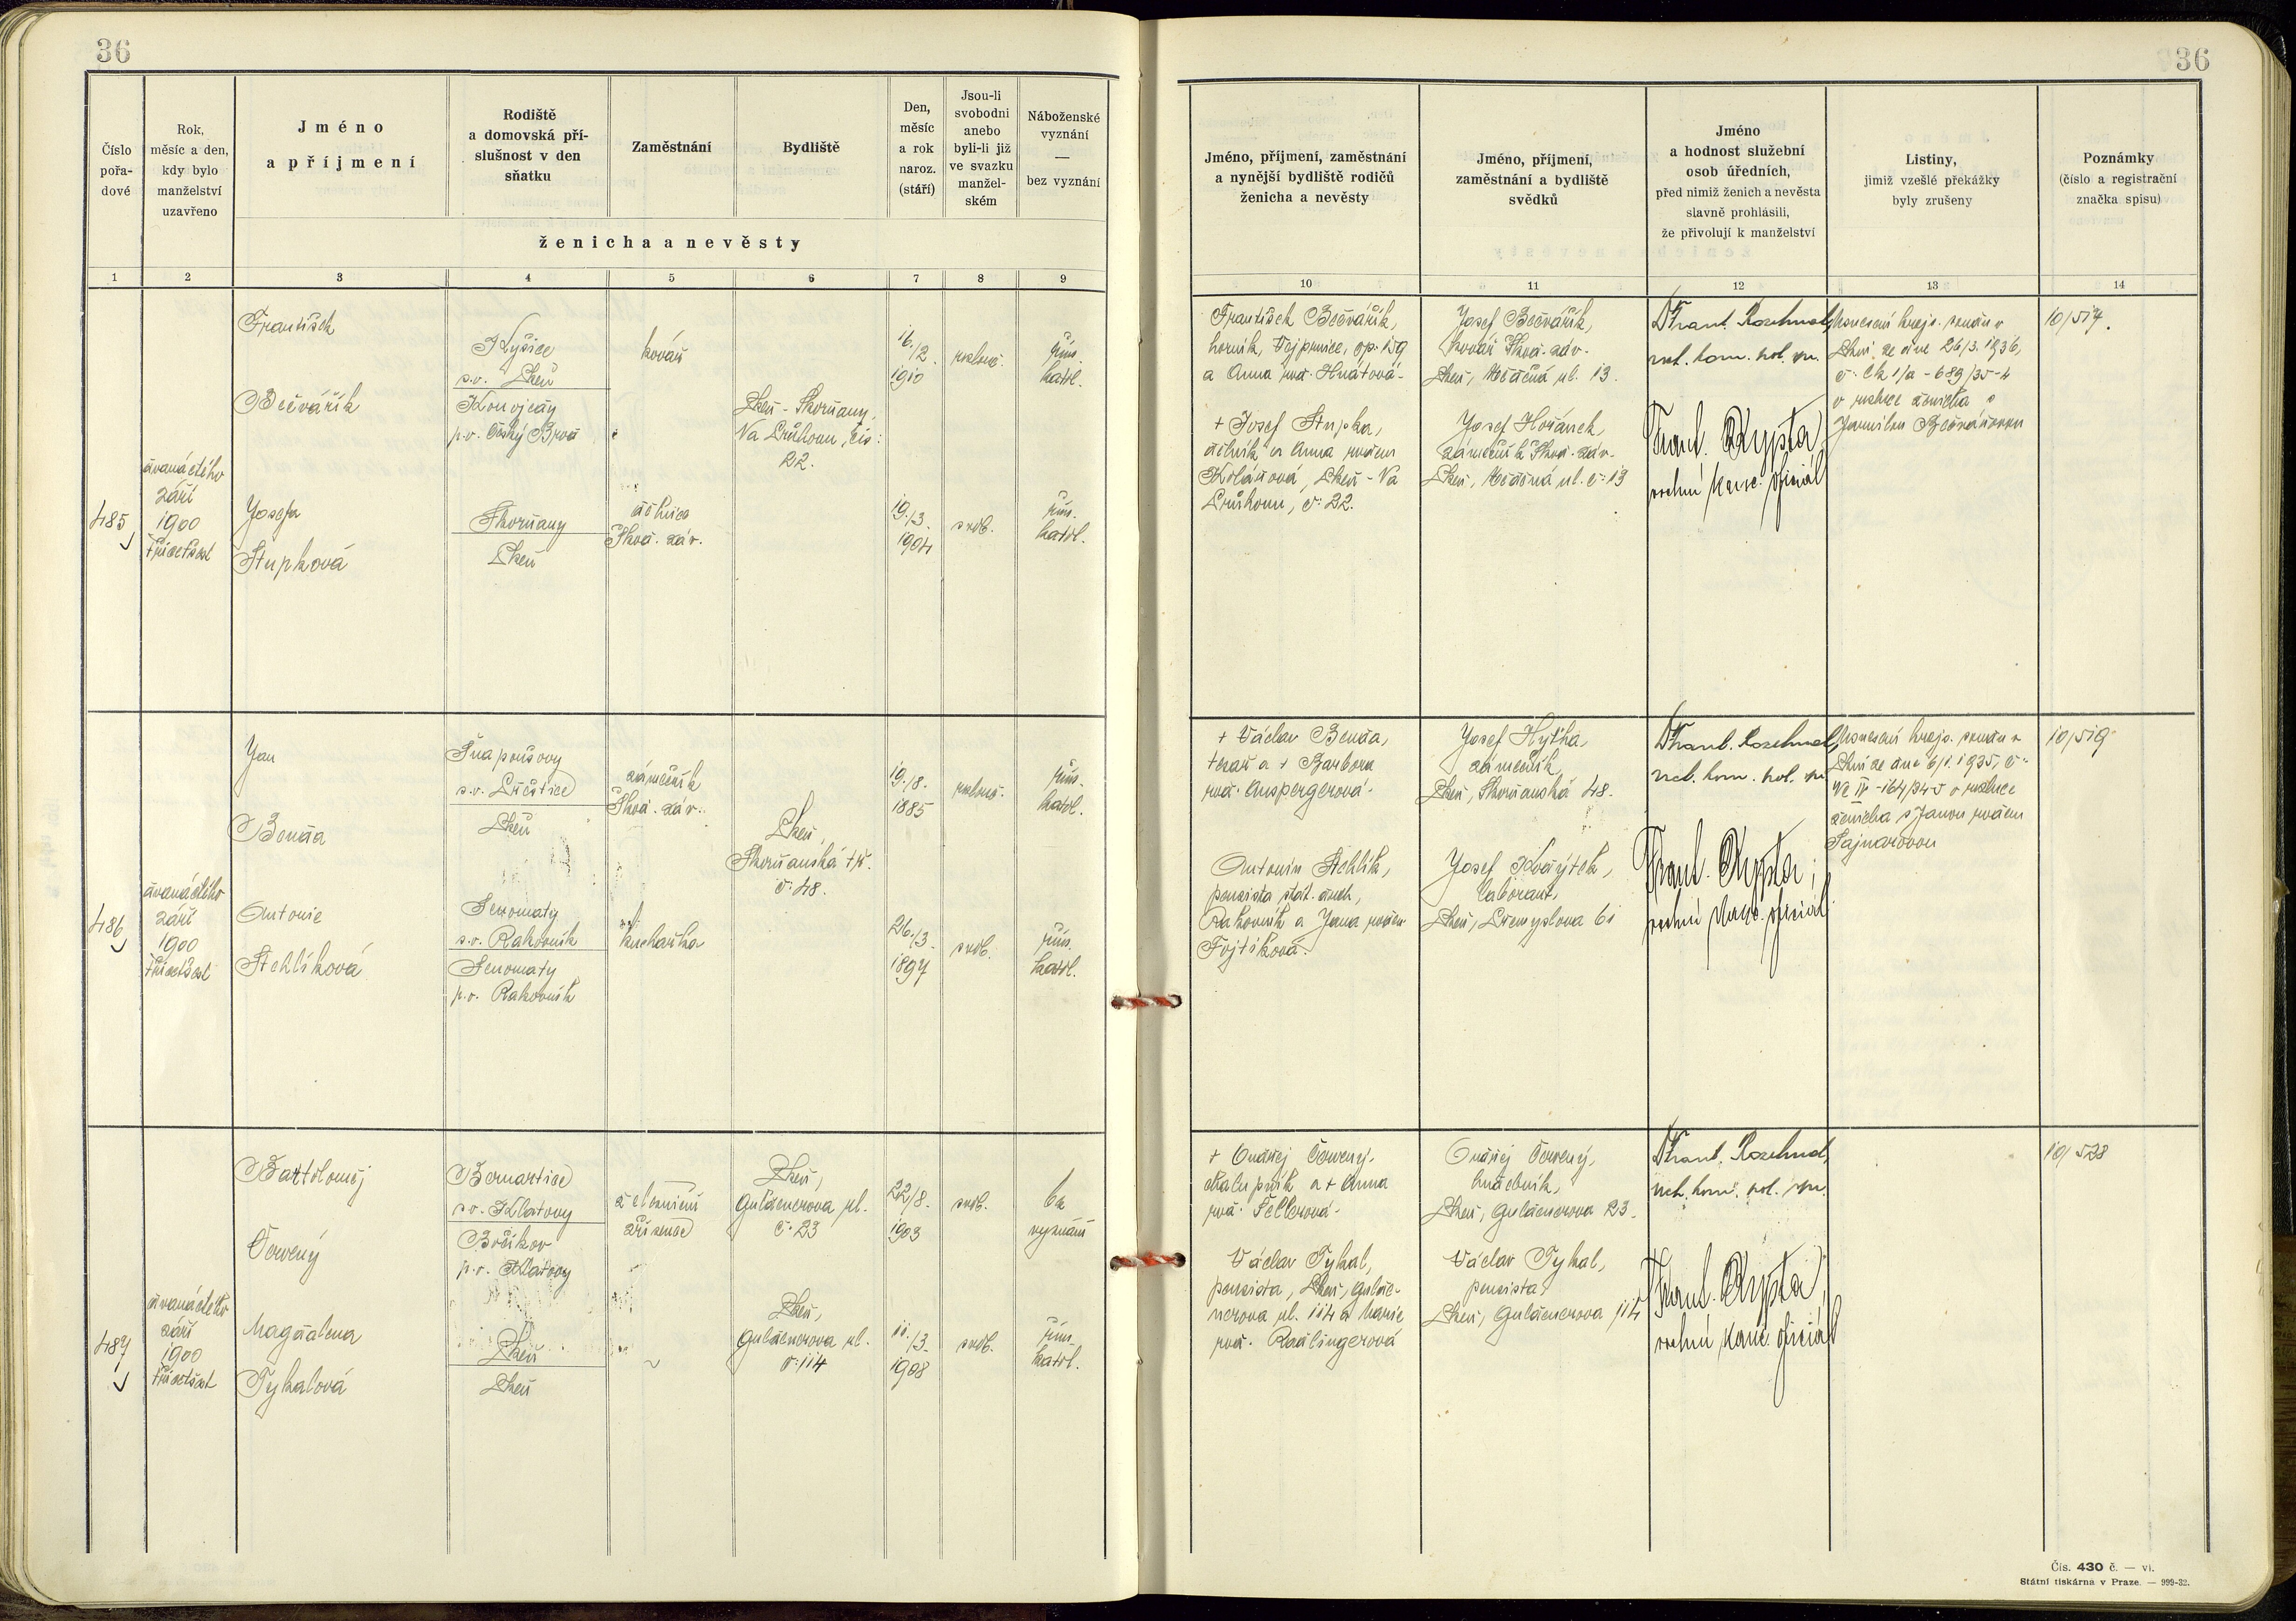 36
36
Číslo
pořa-
dové
Rok,
měsíc a den,
kdy bylo
manželství
uzavřeno
Jméno
a příjmení
Rodiště
a domovská pří-
slušnost v den
sňatku
Zaměstnání
Bydliště
Den,
měsíc
a rok
naroz.
(stáří)
Jsou-li
svobodni
anebo
byli-li již
ve svazku
manžel-
ském
Náboženské
vyznání
—
bez vyznání
ženicha a nevěsty
Jméno, příjmení, zaměstnání
a nynější bydliště rodičů
ženicha a nevěsty
Jméno, příjmení,
zaměstnání a bydliště
svědků
Jméno
a hodnost služební
osob úředních,
před nimiž ženich a nevěsta
slavně prohlásili,
že přivolují k manželství
Listiny,
jimiž vzešlé překážky
byly zrušeny
Poznámky
(číslo a registrační
značka spisu)
1 2 3 4 5 6 7 8 9
10 11 12 13 14
485
dvanáctého
září
1900
třicetšest
František
Bečvářík
Kyšice
s.o. Plzeň
Konojedy
p.o. Český Brod
kovář
Plzeň - Skvrňany,
Na Průhonu, čís:
22.
16./2.
1910
rozlouč.
řím.
katol.
Josefa
Stupková
Skvrňany
Plzeň
dělnice
Škod. záv.
19./3.
1904
svob.
řím.
katol.
František Bečvářík,
horník, Vejprnice, čp. 159
a Anna roz. Hnátová.
+ Josef Stupka,
dělník a Anna rozen.
Kolářová, Plzeň - Na
Průhonu, č. 22.
Josef Bečvářík,
kovář Škod. záv.
Plzeň, 13.
Josef Hořánek,
zámečník Škod. záv.
Plzeň, ul. č. 13
Dr Frant. Rozehnal,
vrch. kom. pol. spr.
Frant. Krypta,
vrchní kanc. oficiál
Usnesení krajs. soudu v
Plzni ze dne 26/3. 1936,
č. Ck 1/a - 689/35-4
o rozluce ženicha s
Jarmilou Bečvářovou
10/517.
486
dvanáctého
září
1900
třicetšest
Jan
Benda
Snapoušovy
s.o. Přeštice
Plzeň
zámečník
Škod. záv.
Plzeň,
Skvrňanská tř.
č. 48.
19./8.
1885
rozlouč.
řím.
katol.
Antonie
Stehlíková
Senomaty
s.o. Rakovník
Senomaty
p.o. Rakovník
kuchařka
26./3.
1897
svob.
řím.
katol.
+ Václav Benda,
tesař a + Barbora
roz. Auspergerová.
Antonín Stehlík,
pensista stát. drah,
Rakovník a Jana rozen.
Fojtíková.
Josef Hyťha,
zámečník,
Plzeň, Skvrňanská 48.
Josef Kodýtek,
laborant,
Plzeň, Přemyslova 61
Dr Frant. Rozehnal,
vrch. kom. pol. spr.
Frant. Krypta,
vrchní kanc. oficiál
Usnesení krajs. soudu v
Plzni ze dne 6/1. 1935, č.
164/34-5 o rozluce
ženicha s Janou rozen.
Šajnarovou
10/519
487
dvanáctého
září
1900
třicetšest
Bartoloměj
Červený
Bernartice
s.o. Klatovy
Bráskov
p.o. Klatovy
železniční
zřízenec
Plzeň,
Guldenerova ul.
č. 23
22/8.
1903
svob.
bez
vyznání
Magdalena
Tykalová
Plzeň
Plzeň
~
Plzeň,
Guldenerova ul.
č. 114
11./3.
1908
svob.
řím.
katol.
+ Ondřej Červený,
chalupník a + Anna
roz. Sellerová.
Václav Tykal,
pensista, Plzeň, Gulde-
nerova ul. 114 a Marie
roz. Radlingerová
Ondřej Červený,
hudebník,
Plzeň, Guldenerova 23.
Václav Tykal,
pensista
Plzeň, Guldenerova 114
Dr Frant. Rozehnal,
vrch. kom. pol. spr.
Frant. Krypta,
vrchní kanc. oficiál
10/528
Čís. 430 č. — vl.
Státní tiskárna v Praze. — 999-32.